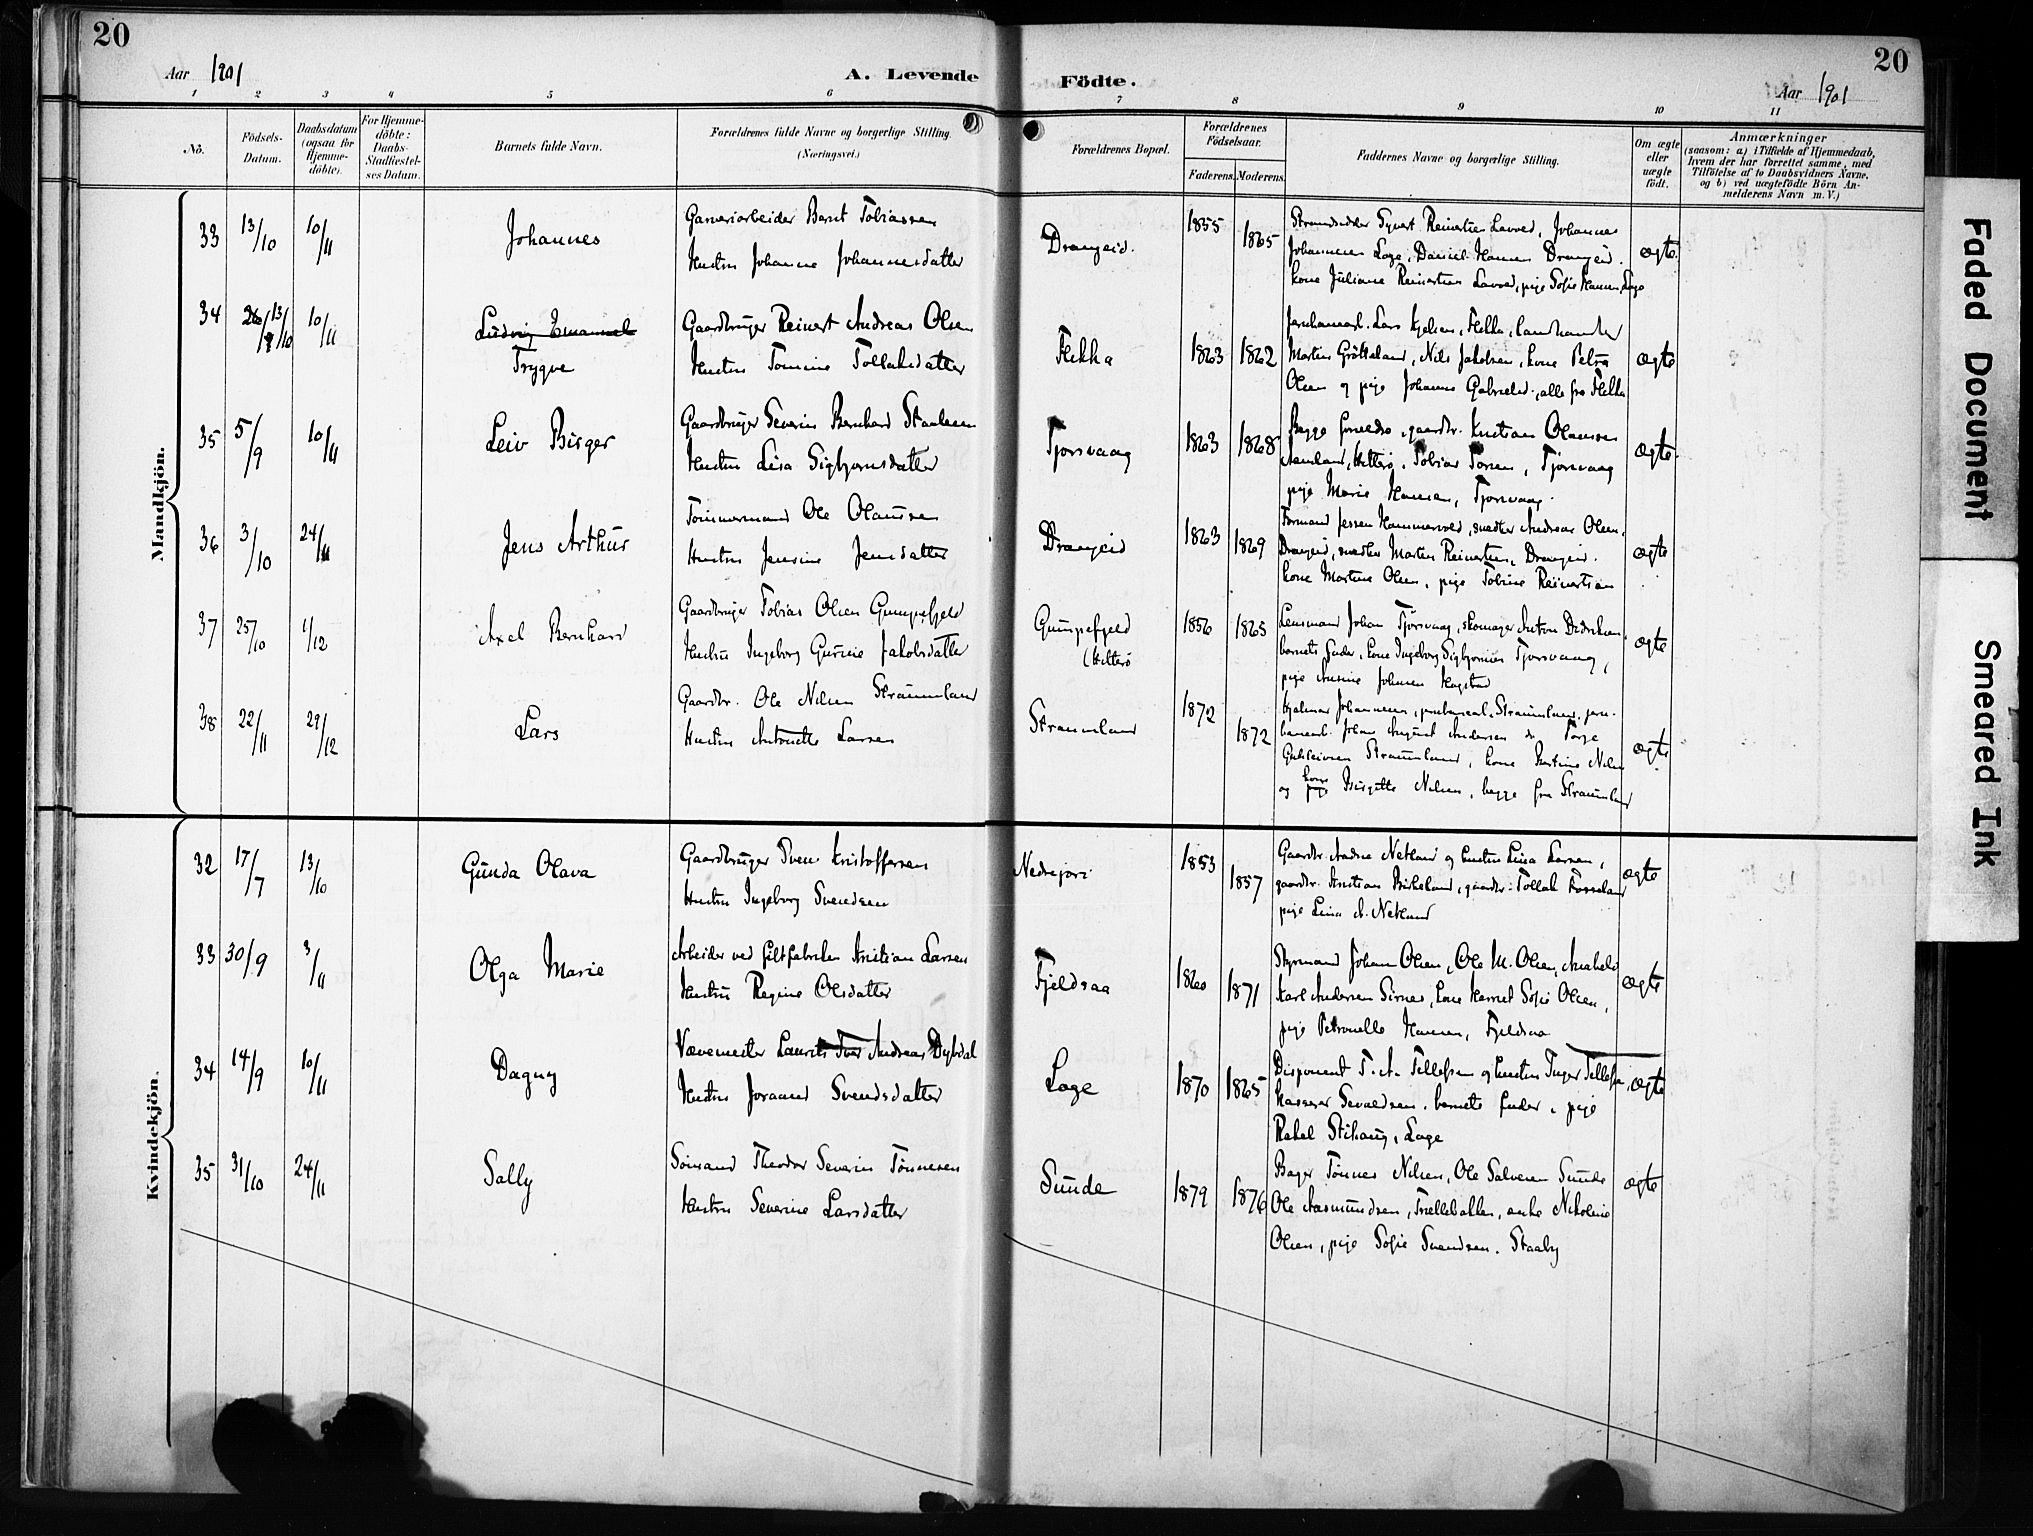 20
Aar 1901
A. Levende
Födte.
Aar 1901
20
1 2 3 4 5 6 7 8 9 10 11
Nô.
Födsels-Datum.
Daabsdatum (ogsaa for Hjemme-döbte).
For Hjemme-döbte: Daabs-Stadfæstel-ses Datum.
Barnets fulde Navn.
Forældrenes fulde Navne og borgerlige Stilling.
(Næringsvei.)
Forældrenes Bopæl.
Forældrenes Födselsaar.
Faderens. Moderens.
Faddernes Navne og borgerlige Stilling.
Om ægte eller uægte födt.
Anmærkninger
(saasom: a) i Tilfælde af Hjemmedaab,
hvem der har forrettet samme, med
Tilföielse af to Daabsvidners Navne.
og b) ved uægtefödte Börn An-
melderens Navn m. V.)
Mandkjön.
33 13/10 10/11 Johannes
Garveriarbeider Bernt Tobiassen
Hustru Johanne Johannesdatter
Drangeid. 1855 1865
Strandsidder Syvert Reinertsen Lavold, Johannes
Johannesen Loge, Daniel Hansen Drangeid.
kone Juliane Reinertsen Lavold, pige Sofie Hansen, Loge
ægte.
34 13/10 10/11 Ludvig Emanuel
Trygve
Gaardbruger Reinert Andreas Olsen
Hustru Tomine Tollaksdatter
Flikka 1863 1862
Lars Kjelsen, Flikka,
Martin Gröteland, Nils Jakobsen, kone Petra
Olsen og pige Johanne Gabrielsd., alle fra Flikka
ægte
35 5/9 10/11 Leiv Birger
Gaardbruger Severin Bernhard
Hustru Lisa Sigbjørnsdatter
Tjorsvaag 1863 1868
Begge forældre, gaardbr. Kristian Olaussen
Hitterø, Tobias Torsen, Tjorsvaag
pige Marie Hansen, Tjorsvaag.
ægte.
36 3/10 24/11 Jens Arthur
Tømmermand Ole Olaussen
Hustru Jensine Jensdatter
Drangeid 1863 1869
Formand Jessen Hammersvold, snedker Andreas Olsen,
Drangeid, snedker Martin Reinertsen, Drangeid.
kone Martine Olsen, pige Tobine Reinertsen
ægte
37 25/10 1/12 Axel Bernhard
Gaardbruger Tobias Olsen Gumpefjeld
Hustru Ingeborg Gurine Jakobsdatter
Gumpefjeld
(Hitterø 1856 1865
Lensmand Johan Tjørsvaag, skomager Anton Didriksen.
barnets fader, kone Ingeborg Sigbjørnsen Tjorsvaag,
pige Johnsen
ægte
38 22/11 29/12 Lars
Gaardbr. Ole Nilsen Straumland
Hustru Antonette Larsen
Straumland 1872 1872
Hjalmar Johannesen, Straumland, jern-
banearb. Johan August Andersen do Torje
Straumland, kone Martine Nilsen
og kone pige Birgitte Nilsen, begge fra Straumland
ægte
Kvindekjön.
32 17/7 13/10 Gunda Olava
Gaardbruger Sven Kristoffersen
Hustru Ingeborg Svendsen
Nedrejord 1853 1857
Gaardbr. Andreas Netland og hustru Lina Larsen,
gaardbr. Kristian Birkeland, gaardbr. Tollak Fosseland
pige Lina A. Netland
ægte
33 30/9 3/11 Olga Marie
Arbeider ved filtfabriken Kristian Larsen
Hustru Regine Olsdatter
Fjeldsaa 1860 1871
Styrmand Johan Olsen, Ole M. Olsen, Anabeløe
Karl Andersen Sirnes, kone Harriet Sofie Olsen,
pige Petronelle Hansen, Fjeldsaa
ægte
34 14/9 10/11 Dagny
Vævemester Laurits Andreas Dybdal
Hustru Joraand Svendsdatter
Loge 1870 1865
Disponent T. A. Tellefsen og hustru Inger Tellefsen,
Kasserer Sevaldsen, barnets fader, pige
Rakel Stihaug, Loge
ægte
35 31/10 24/11 Sally
Sömand Theodor Severin Tönnesen
Hustru Severine Larsdatter
Sunde 1879 1876
Bager Tönnes Nilsen, Ole Salvesen Sunde
Ole Aasmundsen, Trælleballen, enke Nikoline
Olsen, pige Sofie Svendsen. Staaby
ægte
Faded Document
Smeared Ink